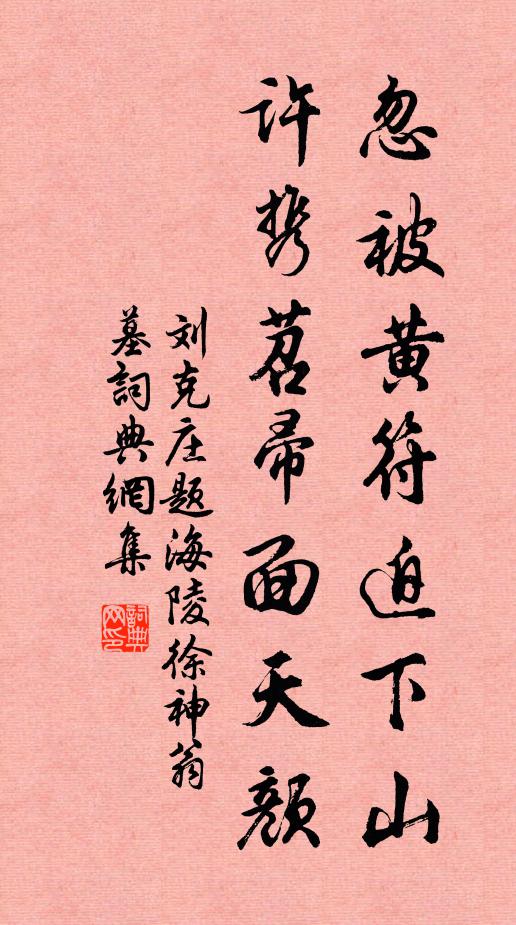 忽被黄符迫下山
许携苕帚面天颜
刘克庄题海陵徐神翁
墓詞典網集
詞典网印